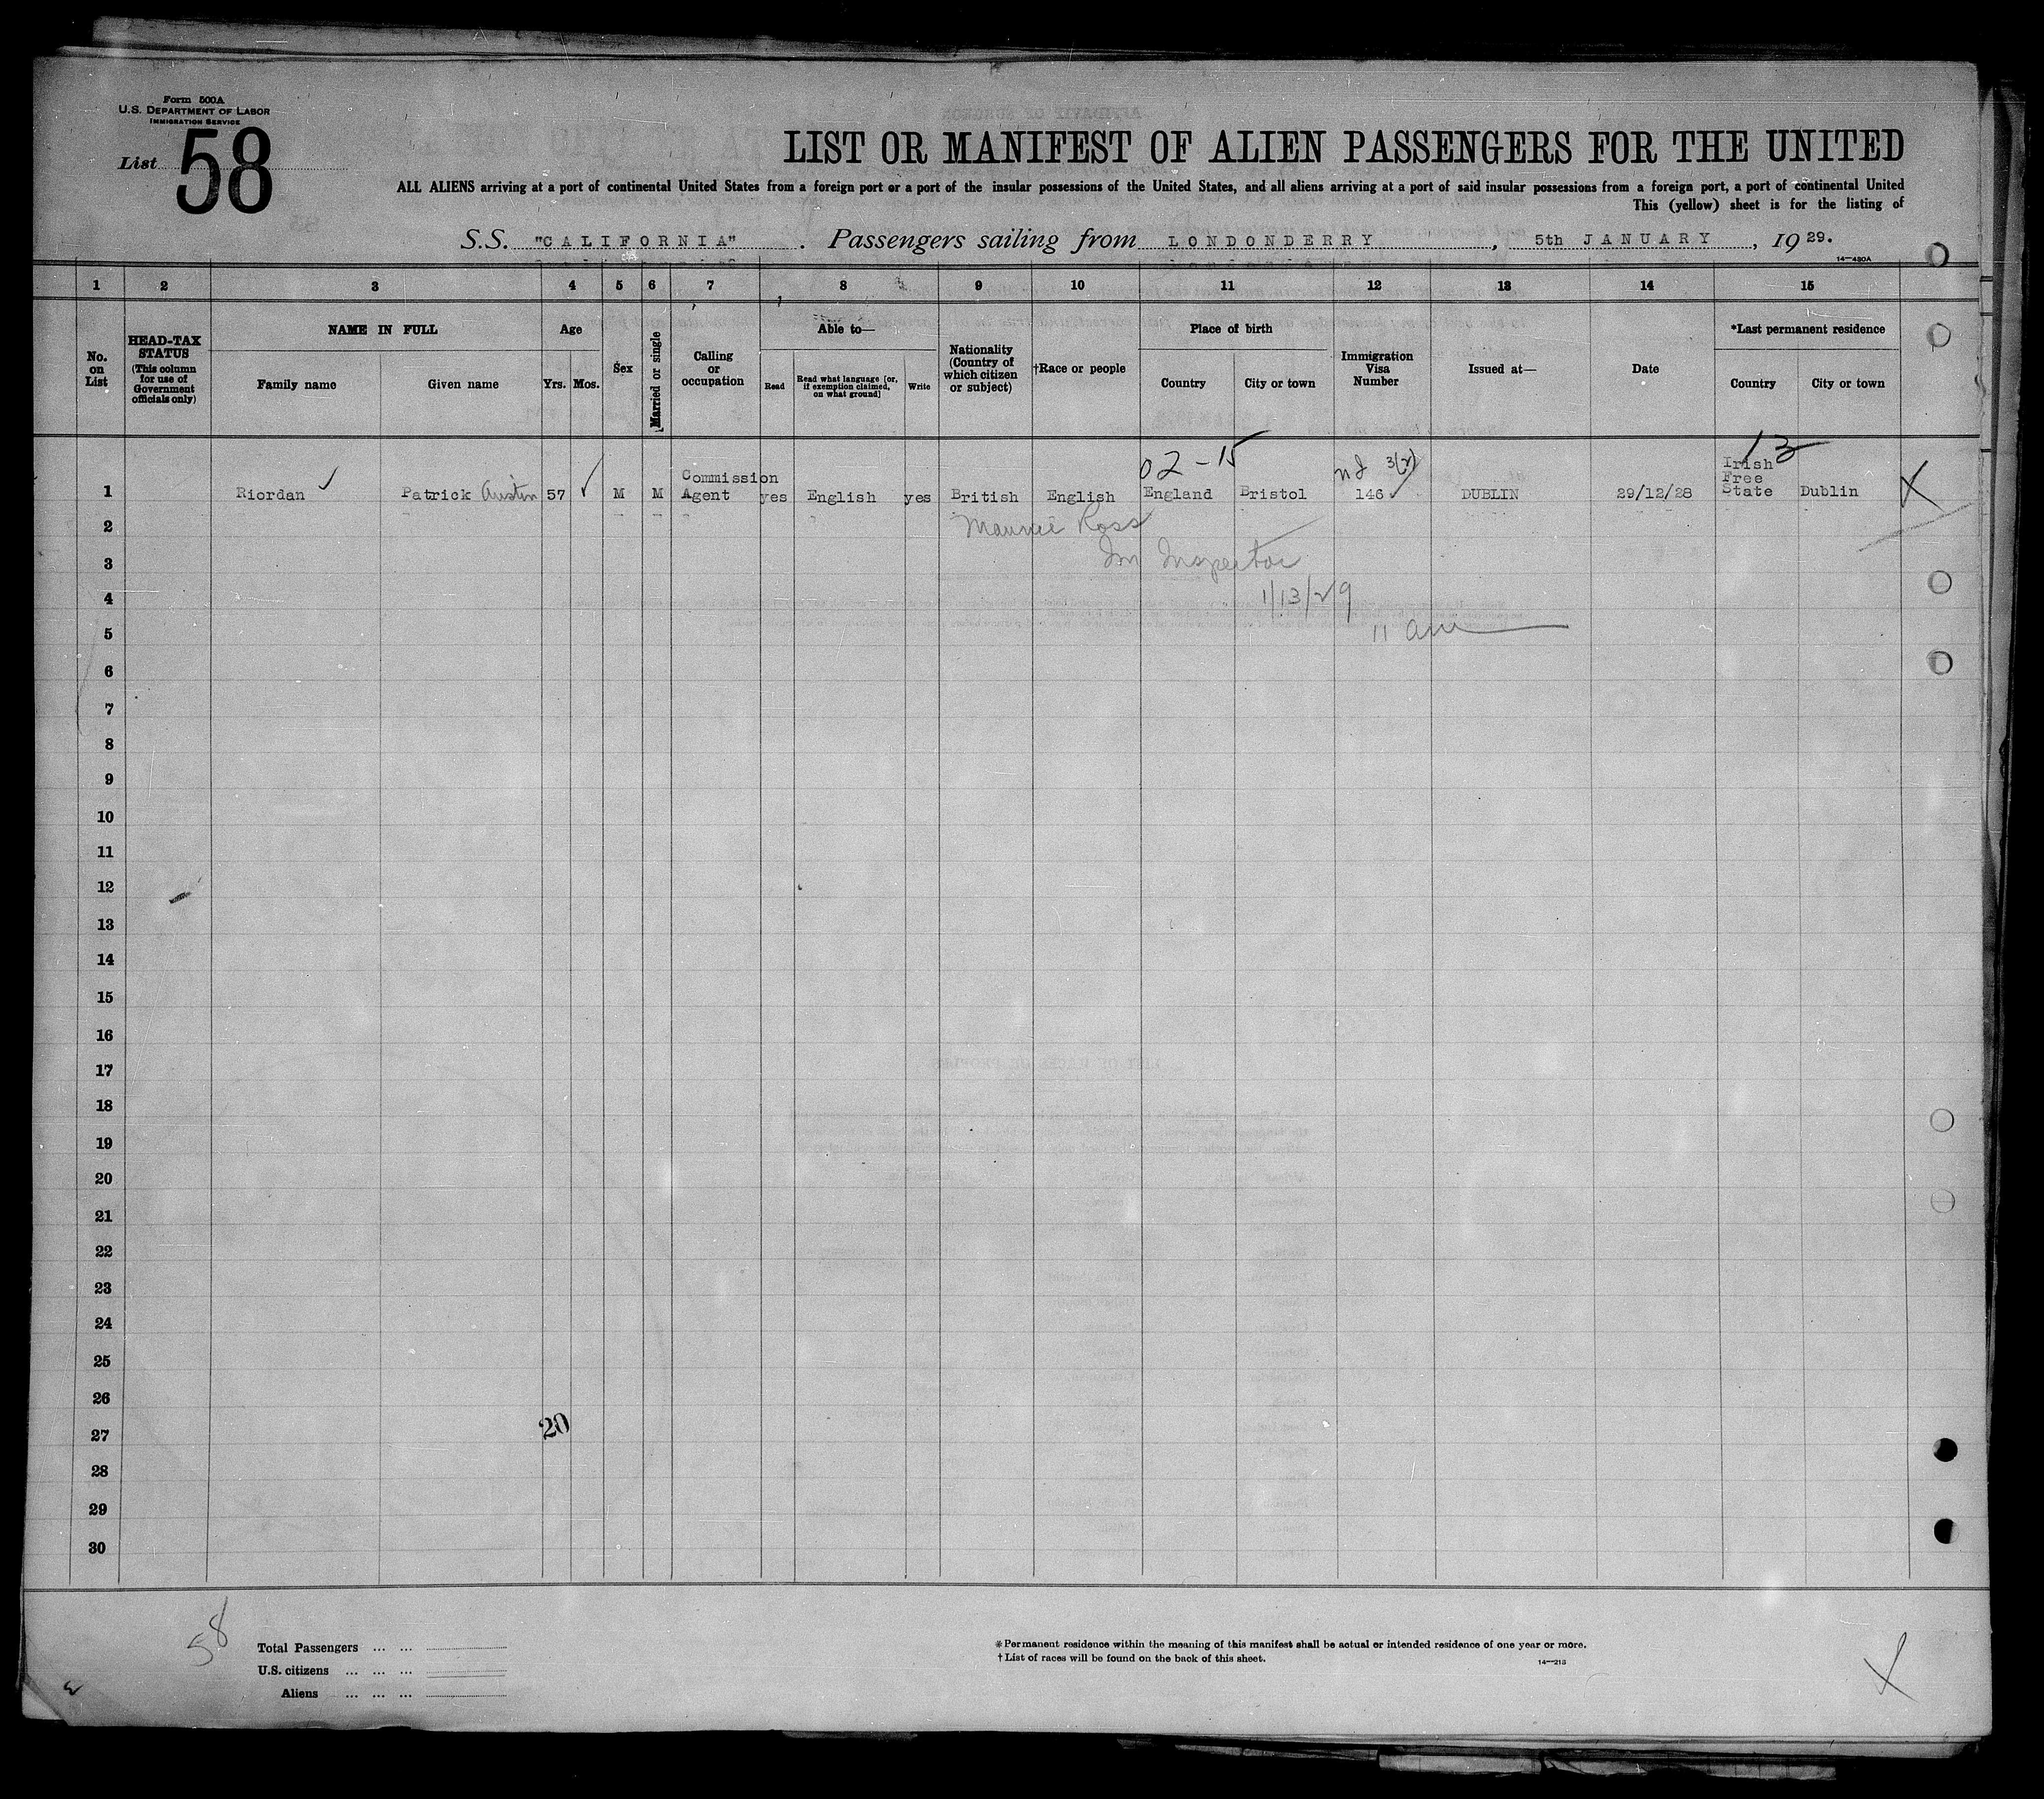 Form 500A
U.S. DEPARTMENT OF LABOR
IMMIGRATION SERVICE
List 58
LIST OR MANIFEST OF ALIEN PASSENGERS FOR THE UNITED
ALL ALIENS arriving at a port of continental United States from a foreign port or a port of the insular possessions of the United States, and all aliens arriving at a port of said insular possessions from a foreign port, a port of continental United
This (yellow) sheet is for the listing of
S.S. "CALIFORNIA". Passengers sailing from LONDONDERRY, 5th JANUARY, 1929.
14-430A
1 2 3 4 5 6 7 8 9 10 11 12 13 14 15
No. on List
HEAD-TAX STATUS (This column for use of Government officials only)
NAME IN FULL
Family name
Given name
Age
Yrs. Mos.
Sex
Married or single
Calling or occupation
Able to—
Read
Read what language [or, if exemption claimed, on what ground]
Write
Nationality (Country of which citizen or subject)
†Race or people
Place of birth
Country
City or town
Immigration Visa Number
Issued at—
Date
*Last permanent residence
Country
City or town
02-15
nd 3(2)
13
1 Riordan ✓ Patrick Austin 57 ✓ M M Commission Agent yes English yes British English England Bristol 146 ✓ DUBLIN 29/12/28 Irish Free State Dublin X
2 Ross
3 Im Inspector
4 1/13/29
5 11 am
6
7
8
9
10
11
12
13
14
15
16
17
18
19
20
21
22
23
24
25
26
20
27
28
29
30
58
Total Passengers ... ...
U.S. citizens ... ... ...
Aliens ... ... ...
*Permanent residence within the meaning of this manifest shall be actual or intended residence of one year or more.
†List of races will be found on the back of this sheet.
14-213
X